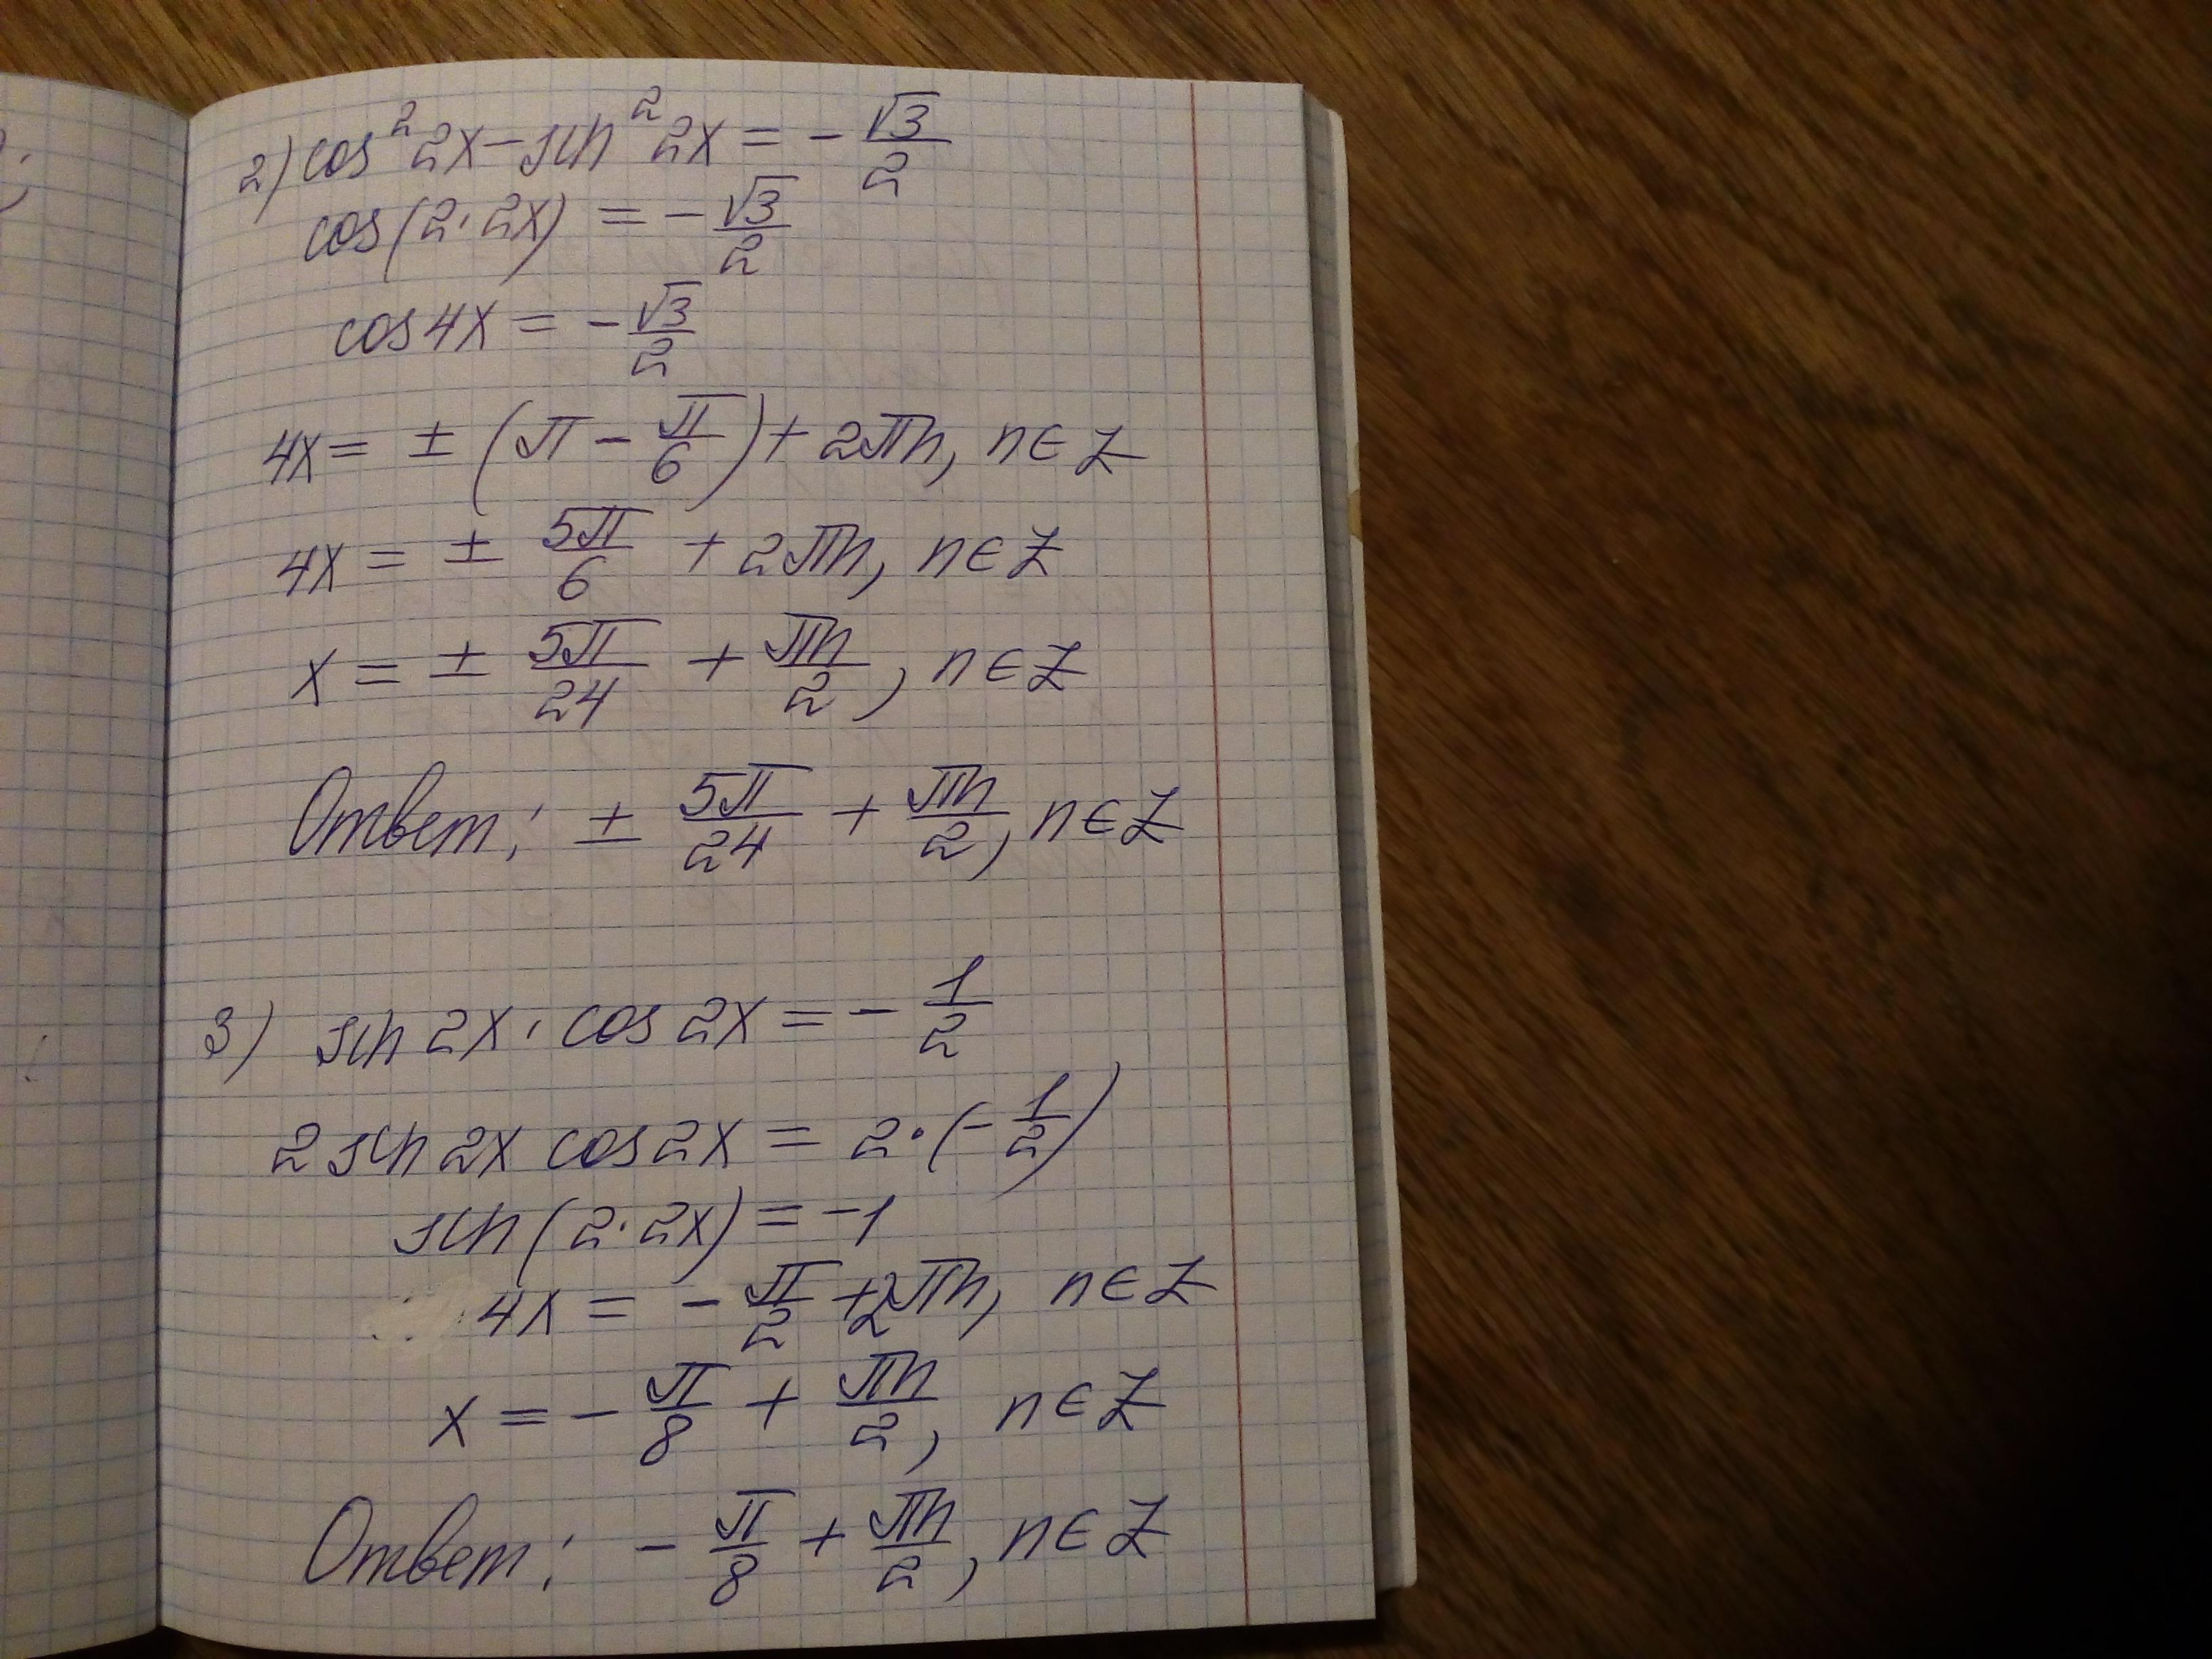 2) cos²2x - sin²2x = - √3/2
cos(2·2x) = - √3/2
cos4x = - √3/2
4x = ± (π - π/6) + 2πn, n∈Z
4x = ± 5π/6 + 2πn, n∈Z
x = ± 5π/24 + πn/2, n∈Z
Ответ: ± 5π/24 + πn/2, n∈Z
3) sin2x · cos2x = - 1/2
2sin2x cos2x = 2·(- 1/2)
sin(2·2x) = -1
4x = - π/2 + 2πn, n∈Z
x = - π/8 + πn/2, n∈Z
Ответ: - π/8 + πn/2, n∈Z